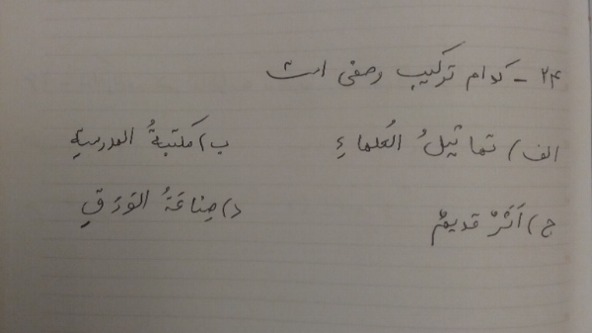 ۲۴ - کدام ترکیب وصفی است
الف) تماثیلُ العُلماءِ ب) مکتبةُ المدرسةِ
ج) اَثَرٌ قدیمٌ د) صِناعَةُ الوَرَقِ